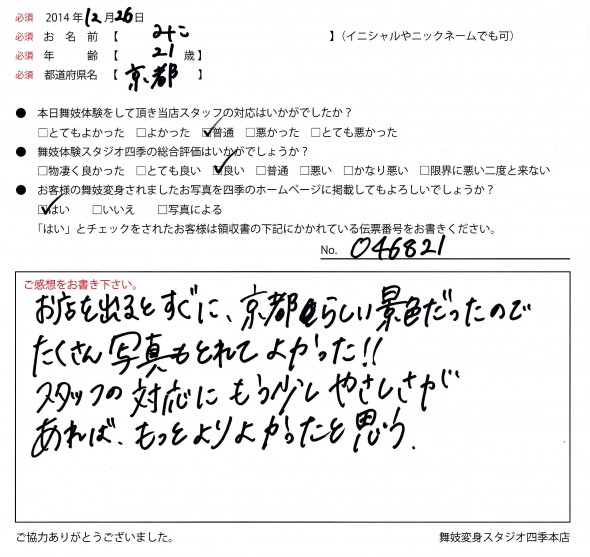 必須 2014年12月26日
必須 お名前【 みこ 】(イニシャルやニックネームでも可)
必須 年齢【 21 歳】
必須 都道府県名【 京都 】
● 本日舞妓体験をして頂き当店スタッフの対応はいかがでしたか?
□とてもよかった □よかった ☑普通 □悪かった □とても悪かった
● 舞妓体験スタジオ四季の総合評価はいかがでしょうか?
□物凄く良かった □とても良い ☑良い □普通 □悪い □かなり悪い □限界に悪い二度と来ない
● お客様の舞妓変身されましたお写真を四季のホームページに掲載してもよろしいでしょうか?
☑はい □いいえ □写真による
「はい」とチェックをされたお客様は領収書の下記にかかれている伝票番号をお書きください。
No. 046821
ご感想をお書き下さい。
お店を出るとすぐに、京都らしい景色だったので
たくさん写真もとれてよかった!!
スタッフの対応にもう少しやさしさが
あれば、もっとよりよかったと思う.
ご協力ありがとうございました。 舞妓変身スタジオ四季本店